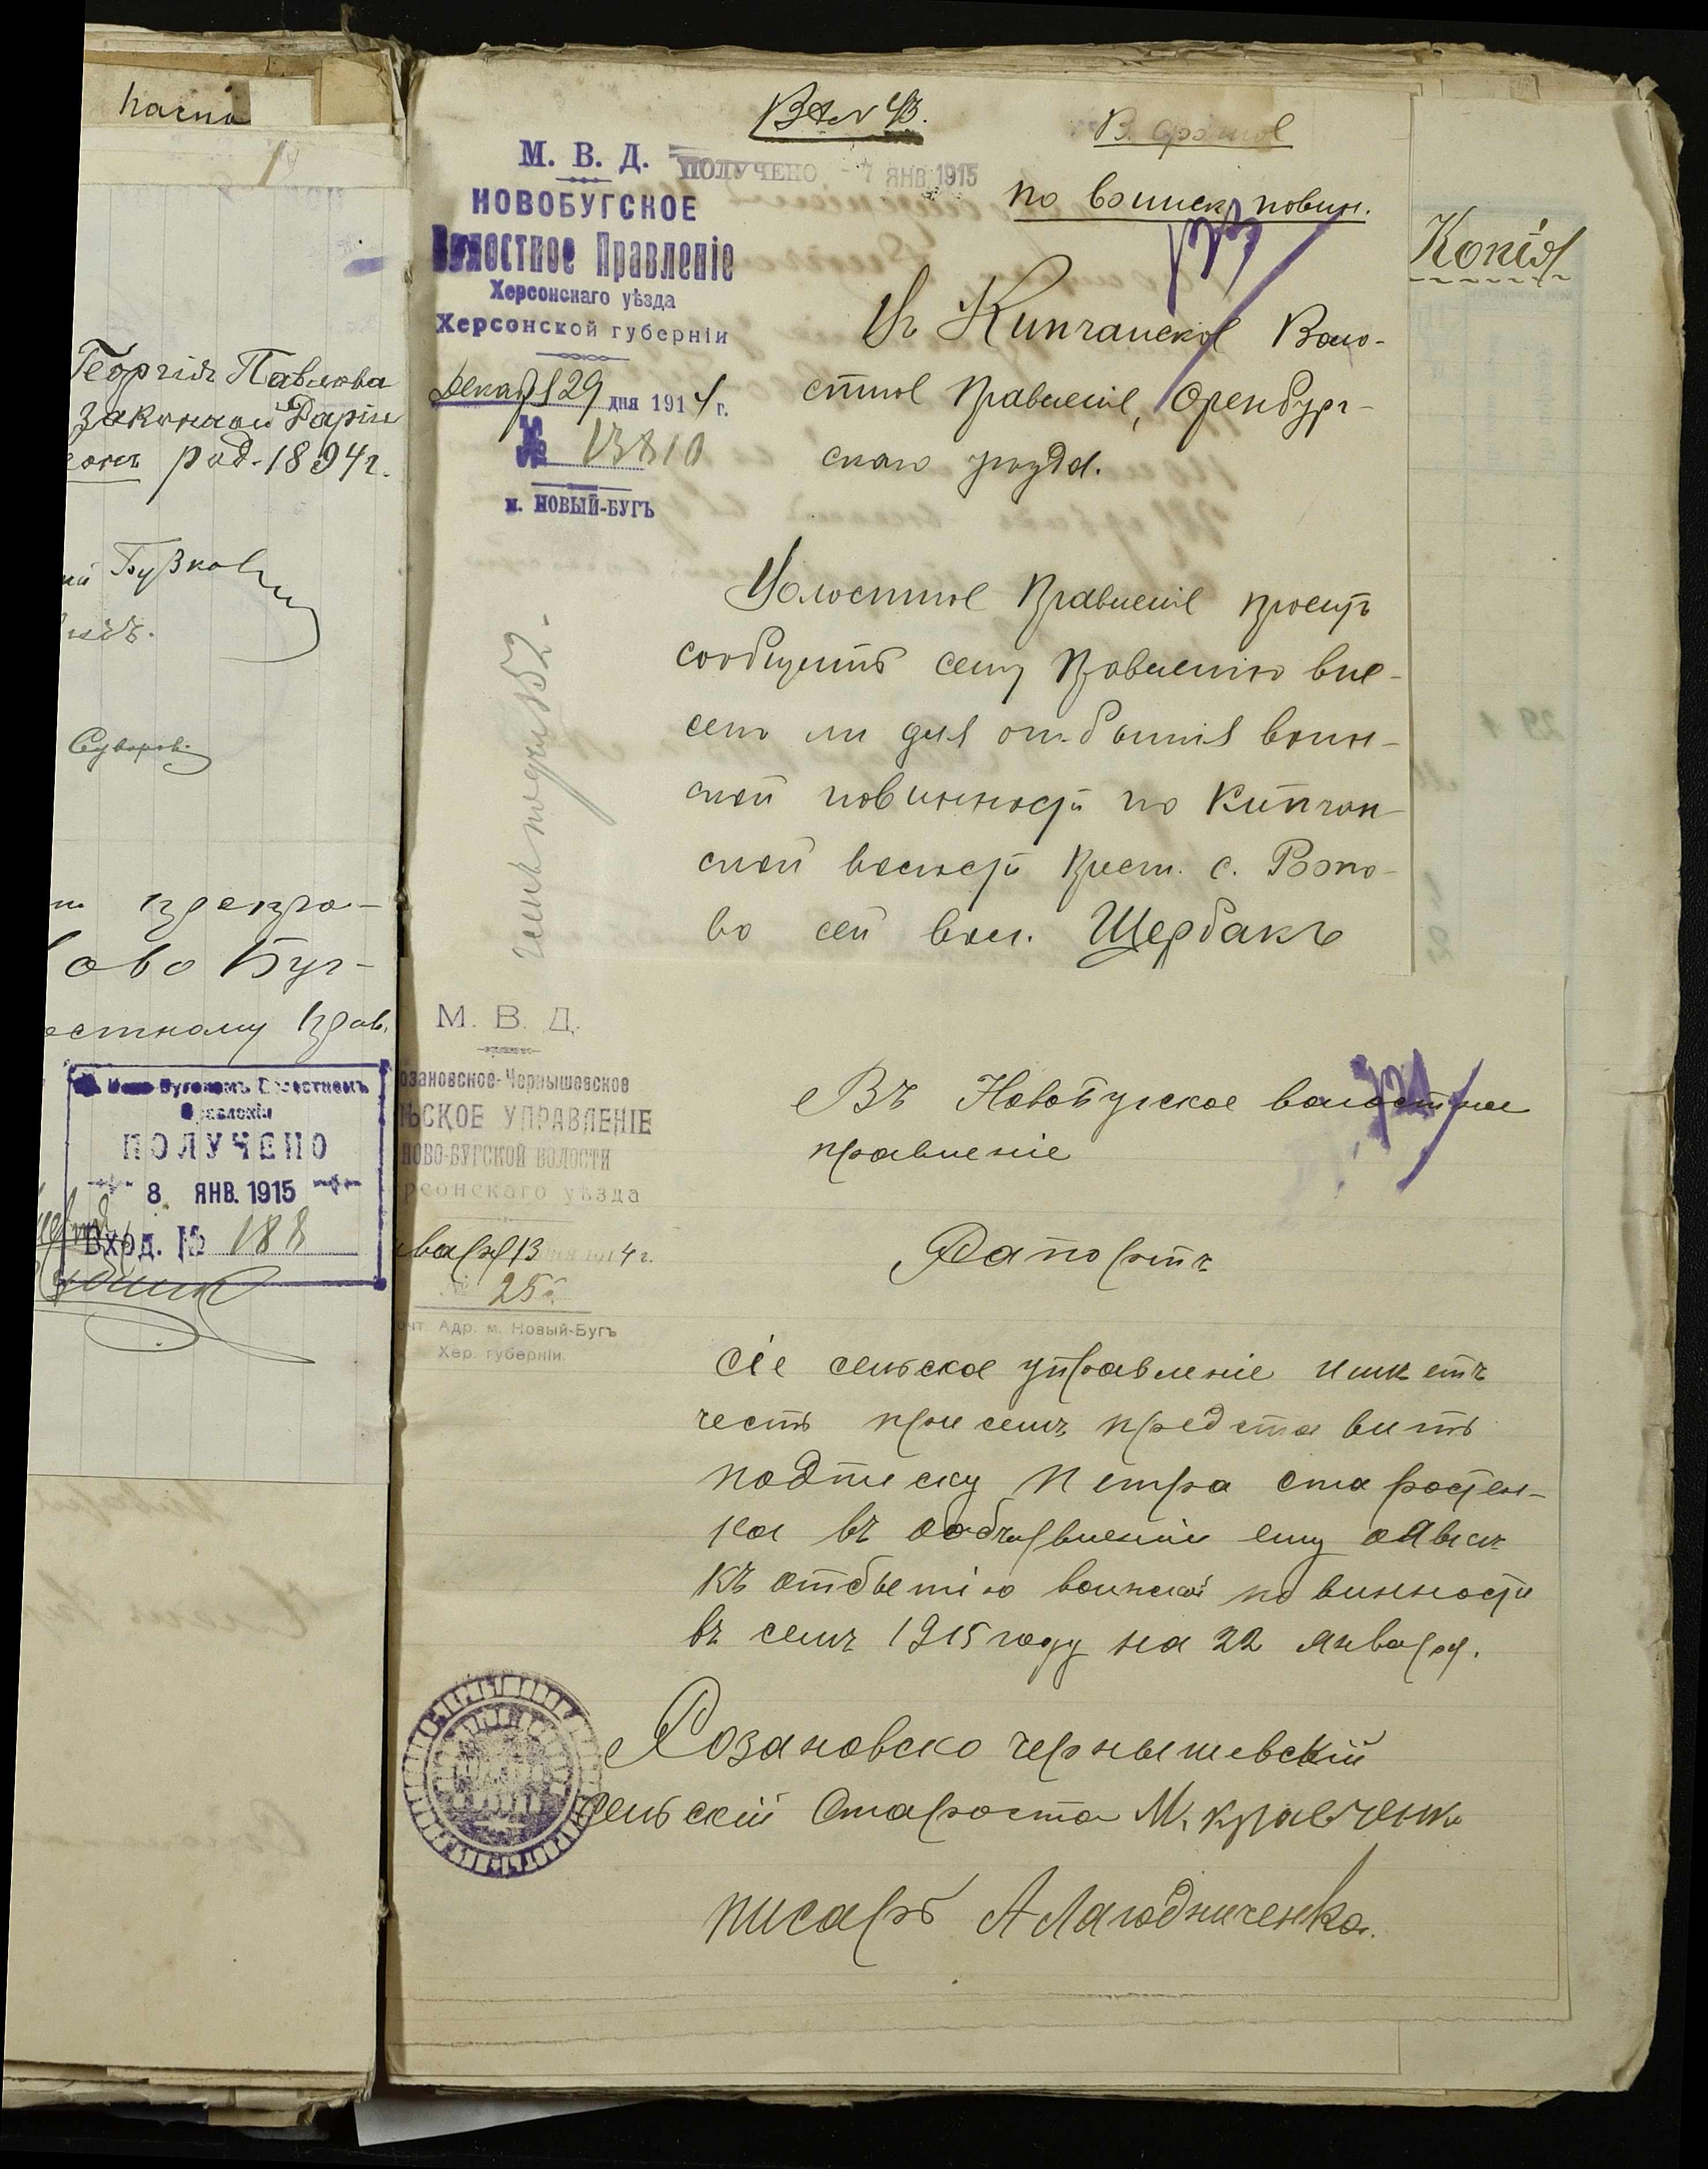 Георгія Павлова
законной Даріи
род. 1894 г.
Бузков
Суворов
ово Буг-
естному Прав.
Волостномъ
Правленіи
ПОЛУЧЕНО
8. ЯНВ. 1915
Вход. № 188
В. срочное
М. В. Д.
ПОЛУЧЕНО - 7 ЯНВ 1915
НОВОБУГСКОЕ
по воинск. повин.
Волостное Правленіе
Херсонскаго уѣзда
Херсонской губерніи
Декабря 29 дня 1914 г.
№ 13810
м. НОВЫЙ-БУГЪ
Копія
Въ Кипчанское Воло-
стное Правленіе, Оренбург-
скаго уѣзда.
Волостное Правленіе проситъ
сообщить сему Правленію вне-
сенъ ли для отбытія воин-
ской повинности по Кипчан-
ской волости крест. с.
во сей вол. Щербакъ
М. В. Д.
озановское-Чернышевское
ЬСКОЕ УПРАВЛЕНІЕ
НОВО-БУГСКОЙ ВОЛОСТИ
рсонскаго уѣзда
нваря 13 дня 1914 г.
№ 25
очт. Адр. м. Новый-Бугъ
Хер. губерніи.
Въ Новобугское волостное
правленіе
Рапортъ
Сіе сельское управленіе имѣетъ
честь при семъ представить
подписку Петра Старостен-
ка въ объявленіи ему о явкѣ
къ отбытію воинской повинности
въ семъ 1915 году на 22 января.
Розановско чернышевскій
сельскій Староста М. Кравченко
писарь А Лагодниченко.